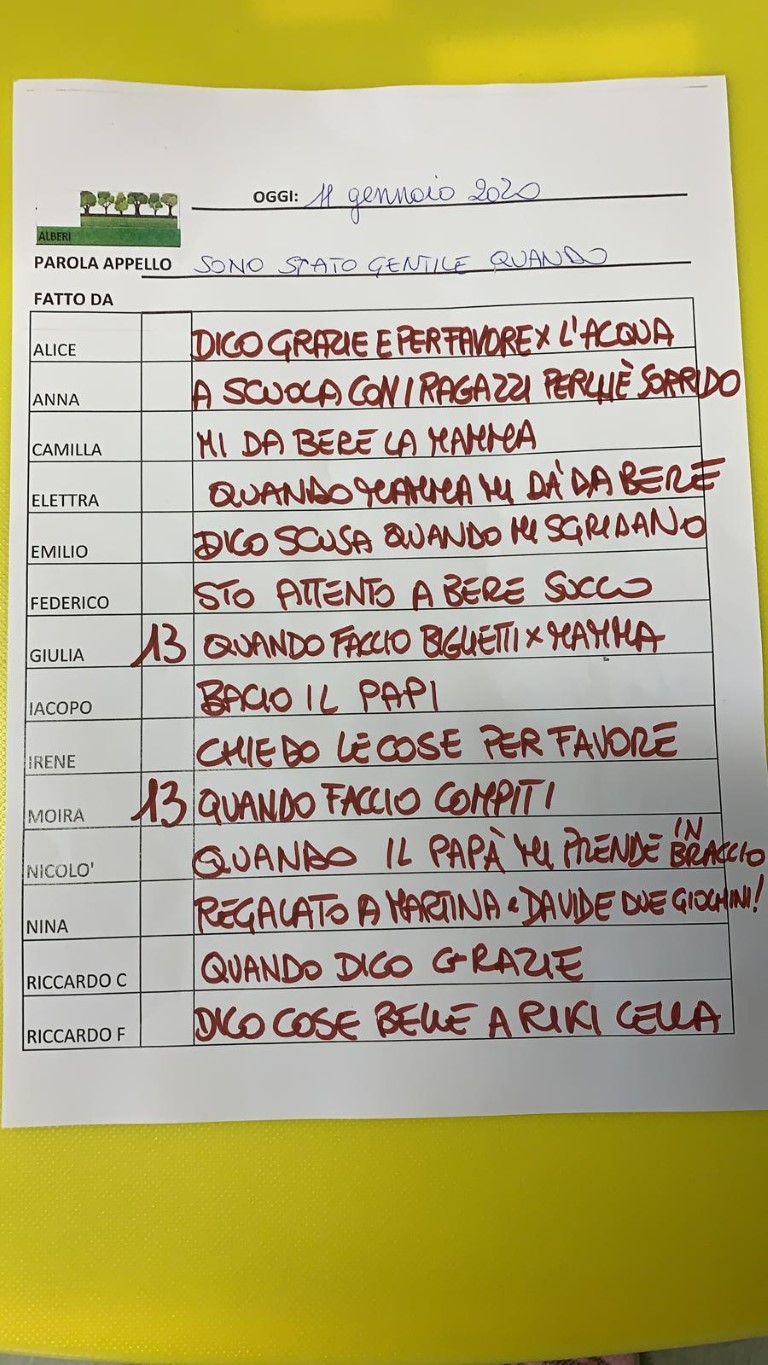 OGGI: 11 gennaio 2020
ALBERI
PAROLA APPELLO SONO STATO GENTILE QUANDO
FATTO DA
ALICE DICO GRAZIE E PER FAVORE X L'ACQUA
ANNA A SCUOLA CON I RAGAZZI PERCHÈ SORRIDO
CAMILLA MI DA BERE LA MAMMA
ELETTRA QUANDO MAMMA MI DÀ DA BERE
EMILIO DICO SCUSA QUANDO MI SGRIDANO
FEDERICO STO ATTENTO A BERE SUCCO
GIULIA 13 QUANDO FACCIO BIGLIETTI X MAMMA
IACOPO BACIO IL PAPI
IRENE CHIEDO LE COSE PER FAVORE
MOIRA 13 QUANDO FACCIO COMPITI
NICOLO' QUANDO IL PAPÀ MI PRENDE IN BRACCIO
NINA REGALATO A MARTINA e DAVIDE DUE GIOCHINI!
RICCARDO C QUANDO DICO GRAZIE
RICCARDO F DICO COSE BELLE A RIKI CELLA